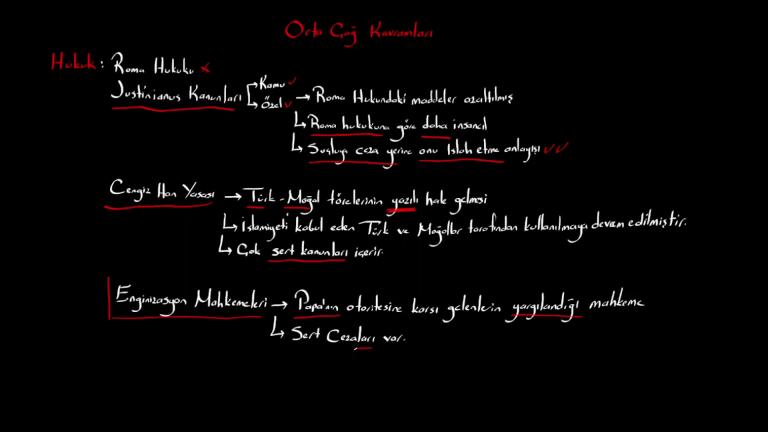 Orta Çağ Kavramları
Hukuk: Roma Hukuku
Justinianus Kanunları
Kamu
Özel
→ Roma Hukundaki maddeler azaltılmış
Roma hukukuna göre daha insancıl
Suçluya ceza yerine onu Islah etme anlayışı
Cengiz Han Yasası → Türk-Moğol törelerinin yazılı hale gelmesi
İslamiyeti kabul eden Türk ve Moğollar tarafından kullanılmaya devam edilmiştir.
Çok sert kanunları içerir.
Enginizasyon Mahkemeleri → Papa'nın otoritesine karşı gelenlerin yargılandığı mahkeme
Sert Cezaları var.